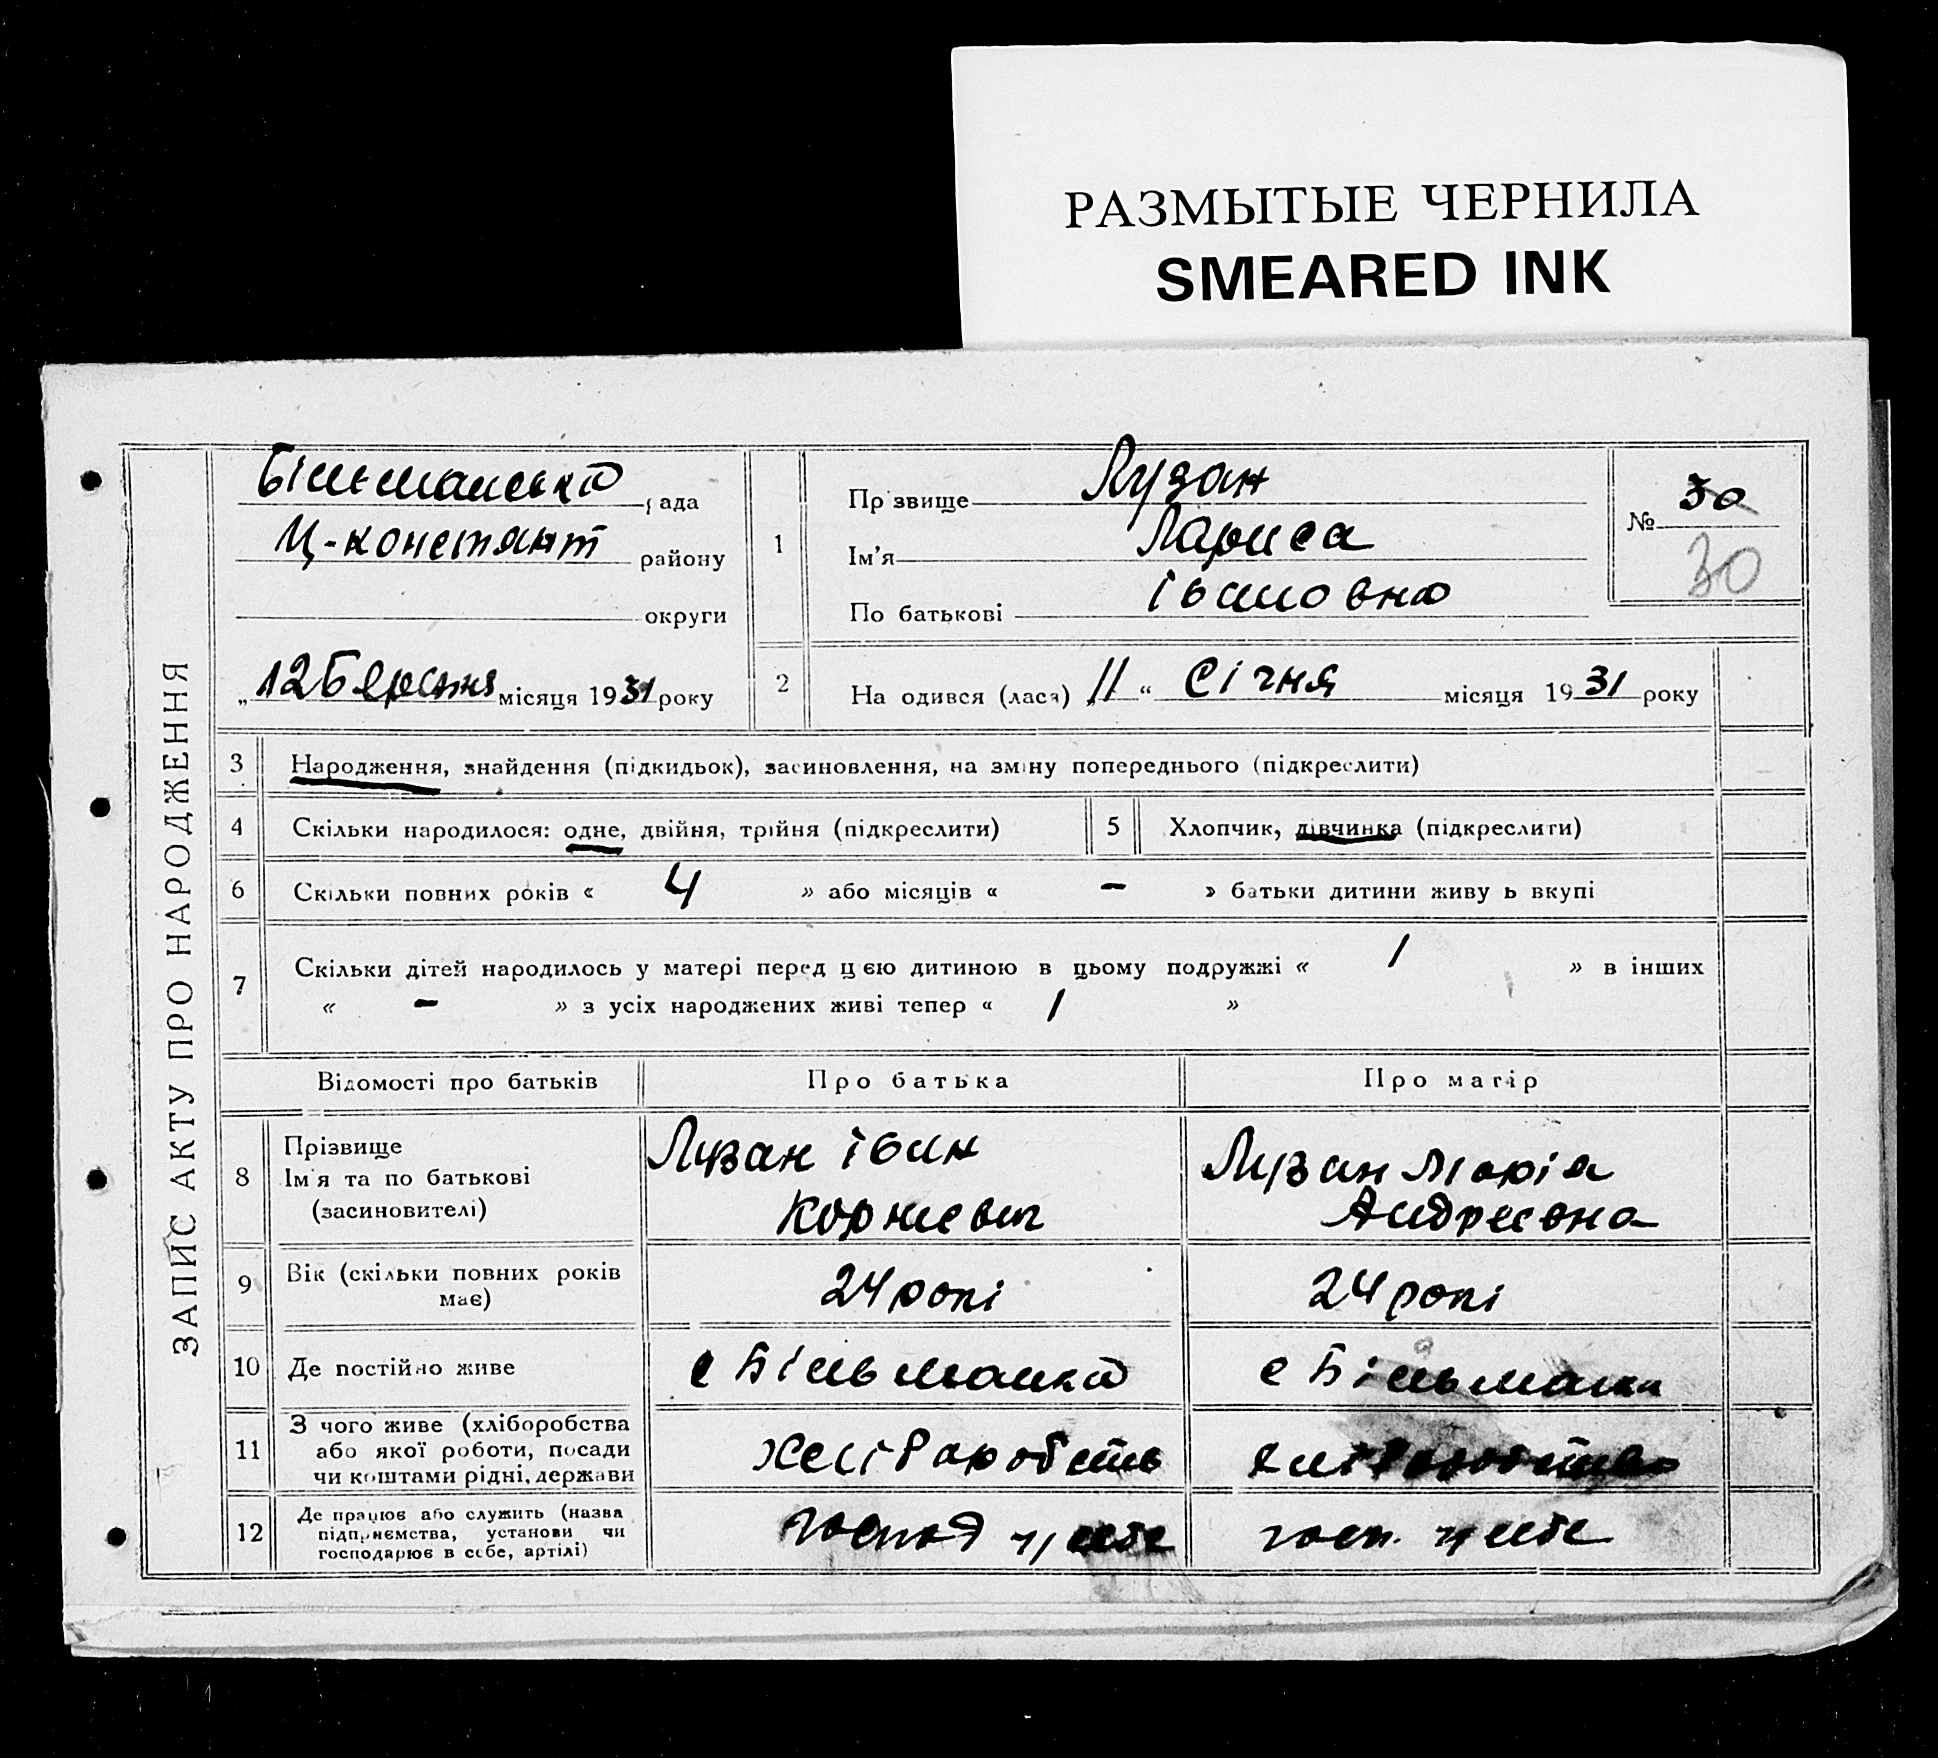 РАЗМЫТЫЕ ЧЕРНИЛА
SMEARED INK
ЗАПИС АКТУ ПРО НАРОДЖЕННЯ
Більманська рада
Ц-констянт району
округи
„12 Березня місяця 1931 року
1
Прізвище Лузан
Ім'я Лариса
По батькові Івановна
№ 30
30
2 Народився (лася) „11“ Січня місяця 1931 року
3 Народження, знайдення (підкидьок), засиновлення, на зміну попереднього (підкреслити)
4 Скільки народилося: одне, двійня, трійня (підкреслити)
5 Хлопчик, дівчинка (підкреслити)
6 Скільки повних років « 4 » або місяців « – » батьки дитини живуть вкупі
7 Скільки дітей народилось у матері перед цією дитиною в цьому подружжі « 1 » в інших
« – » з усіх народжених живі тепер « 1 »
Відомості про батьків Про батька Про матір
8 Прізвище
Ім'я та по батькові
(засиновителі)
Лузан Іван
Корниевич
Лузан Марія
Андреевна
9 Вік (скільки повних років
має)
24 рокі
24 рокі
10 Де постійно живе
с Більманка
с Більманка
11 З чого живе (хліборобства
або якої роботи, посади
чи коштами рідні, держави
12 Де працює або служить (назва
підприємства, установи чи
господарює в себе, артілі)
господ у себе
госп. у себе